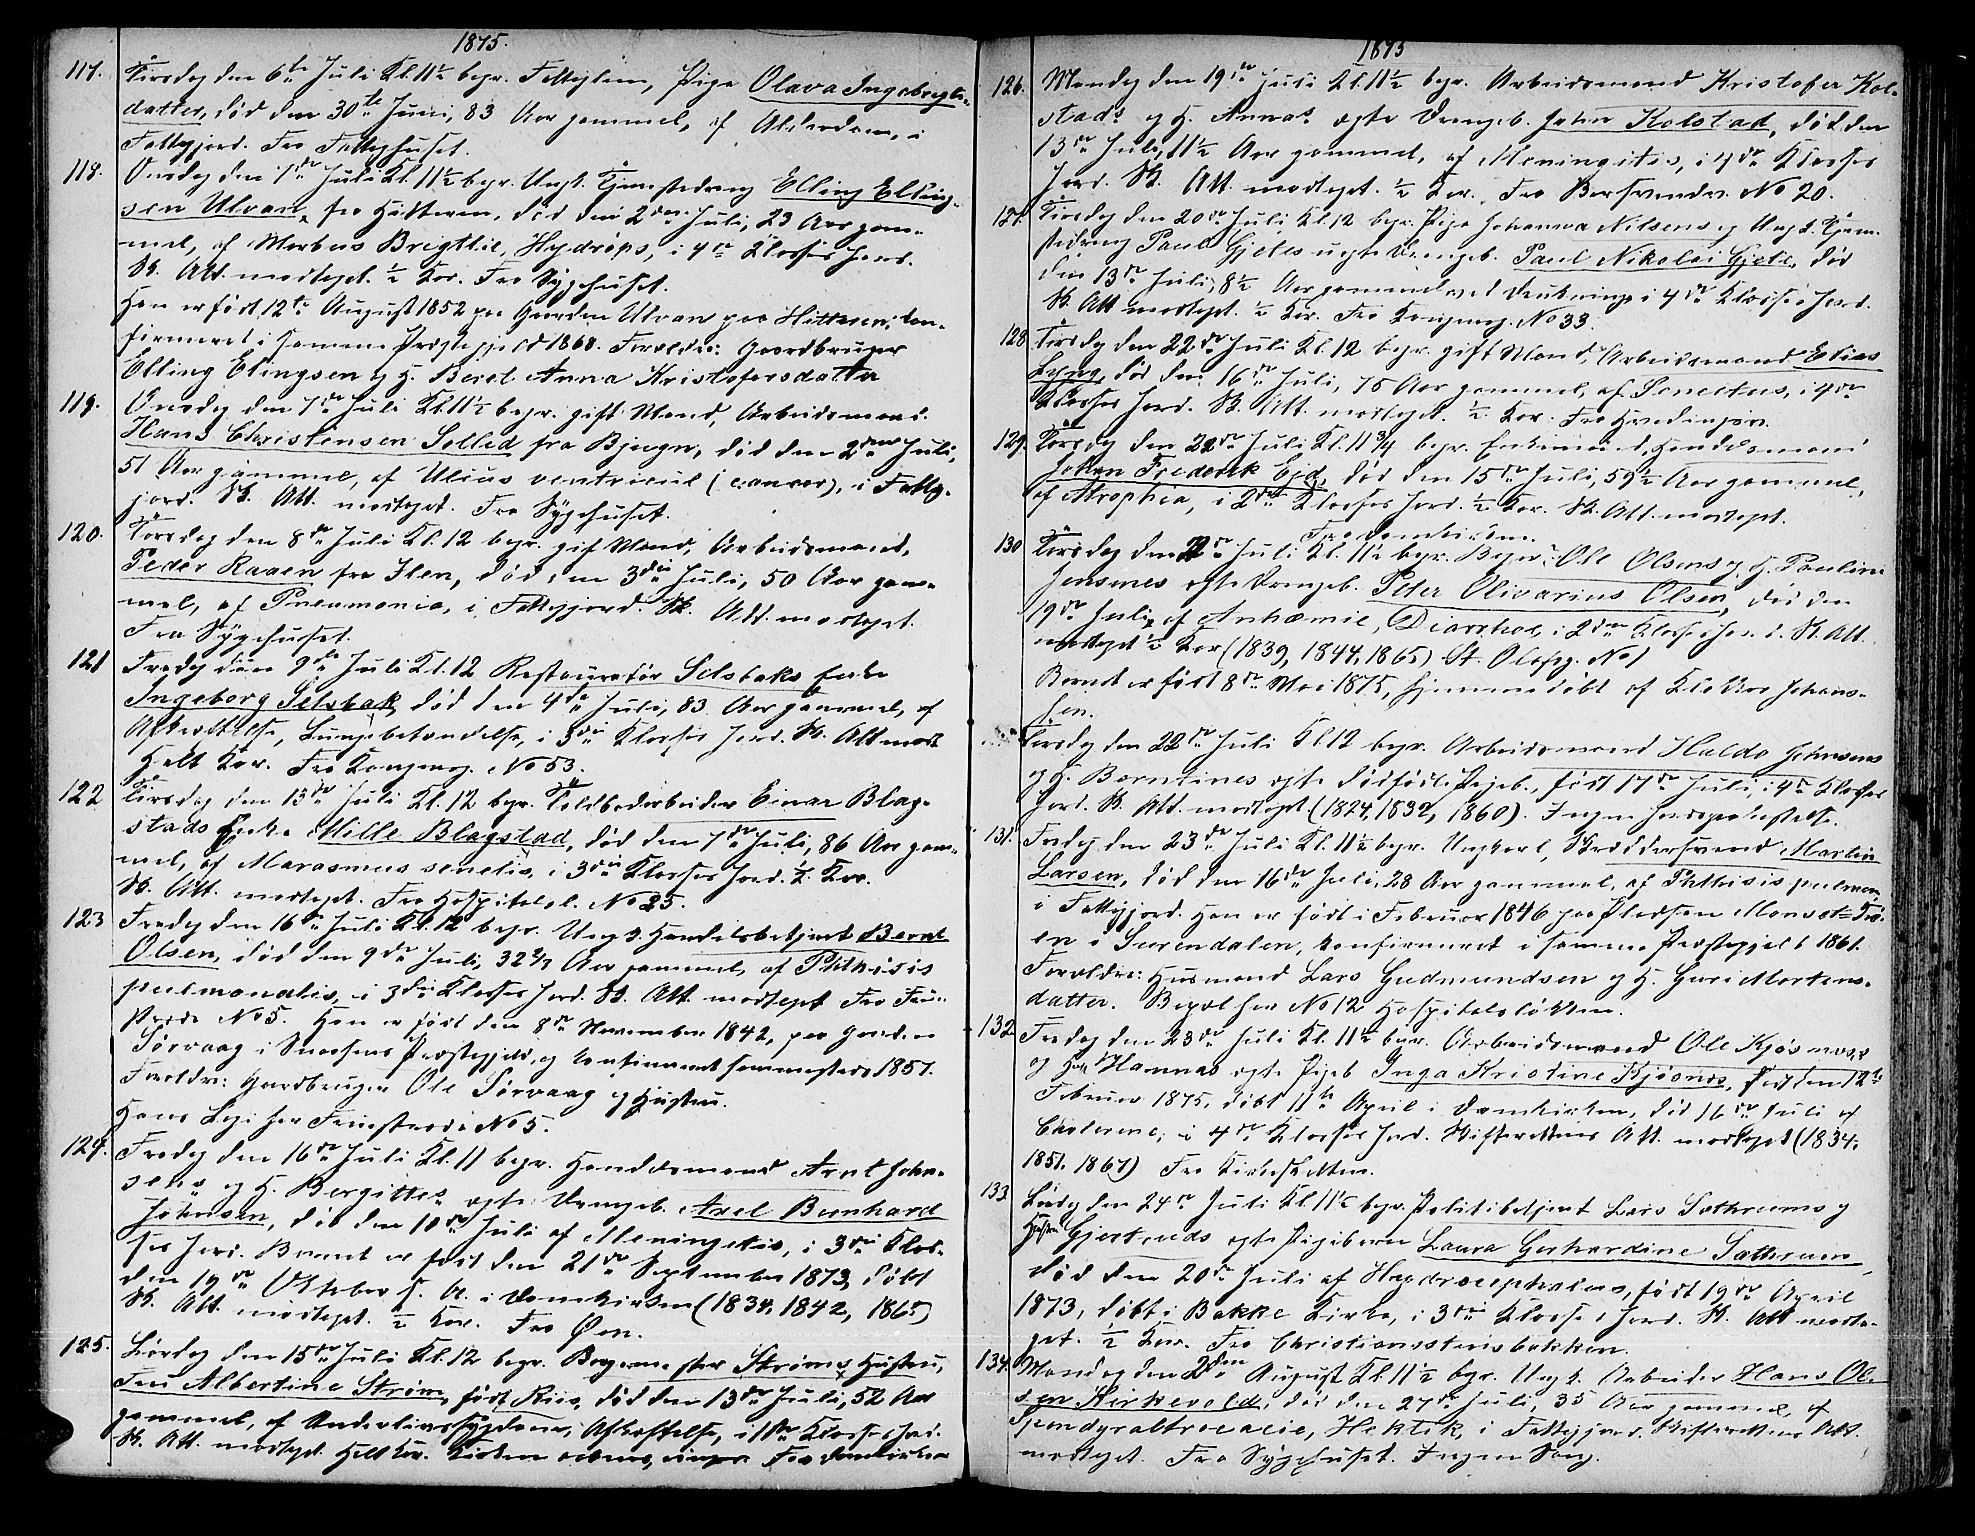 1875.
117. Tirsdag den 6te Juli Kl. 11½ begr. Fattiglem, Pige Olava Ingebrigts-
datter, død den 30te Juni, 83 Aar gammel, af Alderdom, i
Fattigjord. Fra Fattighuset.
118. Onsdag den 7de Juli Kl. 11½ begr. Ungk. Tjenestedreng Elling Elling-
sen Ulvan, fra Hitteren, død den 2den Juli, 23 Aar gam-
mel, af Morbus Brigttii, Hydrops, i 4de Klasses Jord.
Sk. Att. modtaget. ½ Kor. Fra Sygehuset.
Han er født 12te August 1852 paa Gaarden Ulvan paa Hitteren, kon-
firmeret i samme Præstegjeld 1868. Forældre: Gaardbruger
Elling Elingsen og H. Beret Anna Kristofersdatter
119. Onsdag den 7de Juli Kl. 11½ begr. gift Mand, Arbeidsmand
Hans Christensen Sollid fra Bjugn, død den 2den Juli,
51 Aar gammel, af Ulcus ventricul (cancer), i Fattig-
jord. Sk. Att. modtaget. Fra Sygehuset.
120. Torsdag den 8de Juli Kl. 12 begr. gif Mand, Arbeidsmand,
Peder Raaen fra Ilen, død den 3die Juli, 50 Aar gam-
mel, af Pneumonia, i Fattigjord. Sk. Att. modtaget.
Fra Sygehuset.
121 Fredag den 9de Juli Kl. 12 Restauratør Selsbaks Enke
Ingeborg Selsbak, død den 4de Juli, 83 Aar gammel, af
Afkræftelse, Lungebetændelse, i 3die Klasses Jord. Sk. Att modt
Helt Kor. Fra Kongensg. No 53.
122 Tirsdag den 13de Juli Kl. 12 begr. Toldbodarbeider Einar Blag-
stads Enke Mille Blagstad, død den 7de Juli, 86 Aar gam-
mel, af Marasmus senelis, i 3die Klasses Jord. ½ Kor.
Sk. Att. modtaget. Fra Hospitalsl. No 25.
123 Fredag den 16de Juli Kl. 12 begr. Ungk. Handelsbetjent Bernt
Olsen, død den 9de Juli, 32 Aar gammel, af Phthisis
pulmonalis, i 3die Klasses Jord. Sk. Att. modtaget Fra
No 5. Han er født den 8de November 1842, paa Gaarden
Sørvaag i Præstegjeld, og konfirmeret sammesteds 1857.
Forældre: Gaardbruger Ole Sørvaag og Hustru.
Hans Logi har No 5.
124. Fredag den 16de Juli Kl. 11 begr. Handelsmand Arnt John-
sens og H. Bergittes ægte Drengeb. Axel Bernhard
Johnsen, død den 10de Juli af Meningitis, i 3die Klas-
ses Jord. Barnet er født den 21de September 1873, døbt
den 19de Oktober s. A. i Domkirken (1834, 1842, 1865)
Sk. Att. modtaget. ½ Kor. Fra Øen.
125. Lørdag den 15de Juli Kl. 12 begr. Bogermester Strøms Hustru,
Fru Albertine Strøm, født Riis, død den 13de Juli, 52 Aar
gammel, af Underlivssygdom, Afkræftelse, i 1ste Klasses Jord.
Sk. Att. modtaget. Helt Kor. Kirken Fra Domkirken
1875
126. Mandag den 19de Juli Kl. 11½ begr. Arbeidsmand Kristofer Kol-
stads og H. Annas ægte Drengeb. Johan Kolstad, død den
13de Juli, 11½ Aar gammel, af Meningitis, i 4de Klasses
Jord. Sk. Att. modtaget. ½ Kor. Fra Bersvendv. No 20.
127. Tirsdag den 20de Juli Kl. 12 begr. Pige Johanna Nilsens og Ungk. Tjene-
stedreng Paul Gjetes uægte Drengeb. Paul Nikolai Gjete, død
den 13de Juli, 8½ Aar gammel ved Drukning, i 4de Klasses Jord.
Sk Att modtaget. ½ Kor. Fra Kongensg. No 33.
128 Torsdag den 22de Juli Kl. 12 begr. gift Mand, Arbeidsmand Elias
Lyng, død den 16de Juli, 75 Aar gammel, af Senectus, i 4de
Klasses Jord. Sk. Att. modtaget. ½ Kor. Fra
129. Torsdag den 22de Juli Kl. 11¾ begr. Enkemand, Handelsmand
Johan Frederik Eid, død den 15de Juli, 59½ Aar gammel,
af Atrophia, i 2den Klasses Jord. ½ Kor. Sk. Att. modtaget.
Fra
130 Torsdag den 22de Juli Kl. 11½ begr. Ole Olsens og H. Pauline
Jensines ægte Drengeb. Peter Olivarius Olsen, død den
19de Juli, af Anhæmie, Diarrhoe, i 2den Klasses Jord. Sk. Att.
modtaget ½ Kor (1839, 1844, 1865) St. Olafsg. No 1
Barnet er født 8de Mai 1875, hjemmedøbt af Klokker Johan-
sen.
Torsdag den 22de Juli Kl 12 begr. Arbeidsmand Haldo Johnsens
og H. Berntines ægte dødfødte Pigeb., født 17de Juli, i 4de Klasses
Jord. Sk. Att. modtaget (1824, 1832, 1860). Ingen Jordspaakastelse.
131. Fredag den 23de Juli Kl. 11½ begr. Ungkarl, Skræddersvend Martin
Larsen, død den 16de Juli, 28 Aar gammel, af Phthisis pulmon
i Fattigjord. Han er født i Februar 1846 paa Pladsen
i Surendalen, konfirmeret i samme Præstegjeld 1861.
Forældre: Husmand Lars Gudmundsen og H. Guri Mortens-
datter. Bopæl her No 12 Hospitalsløkken.
132 Fredag den 23de Juli Kl. 11½ begr. Arbeidsmand Ole Kjøsnes
og H. Hannas ægte Pigeb Inga Kristine Kjøsnes, født den 12te
Februar 1875, døbt 11te April i Domkirken, død 16de Juli af
Cholerine, i 4de Klasses Jord. Skifterettens Att. modtaget (1834.
1851. 1867) Fra Kirkesletten.
133 Lørdag den 24de Juli Kl. 11½ begr. Politibetjent Lars Sæthrums og
Hustru Gjertruds ægte Pigebarn Laura Gerhardine Sætherum,
død den 20de Juli af Hydrocephalus, født 19de April
1873, døbt i Bakke Kirke, i 3die Klasses Jord. Sk. Att modta-
get. ½ Kor. Fra Christianstensbakken.
134. Mandag den 2den August Kl. 11½ begr. Ungk. Arbeider Hans Ol-
sen Kirkevold, død den 27de Juli, 35 Aar gammel, af
Spondyralthrocacie, Hektik, i Fattigjord. Skifterettens Att.
modtaget. Fra Sygehuset. Ingen Sang.